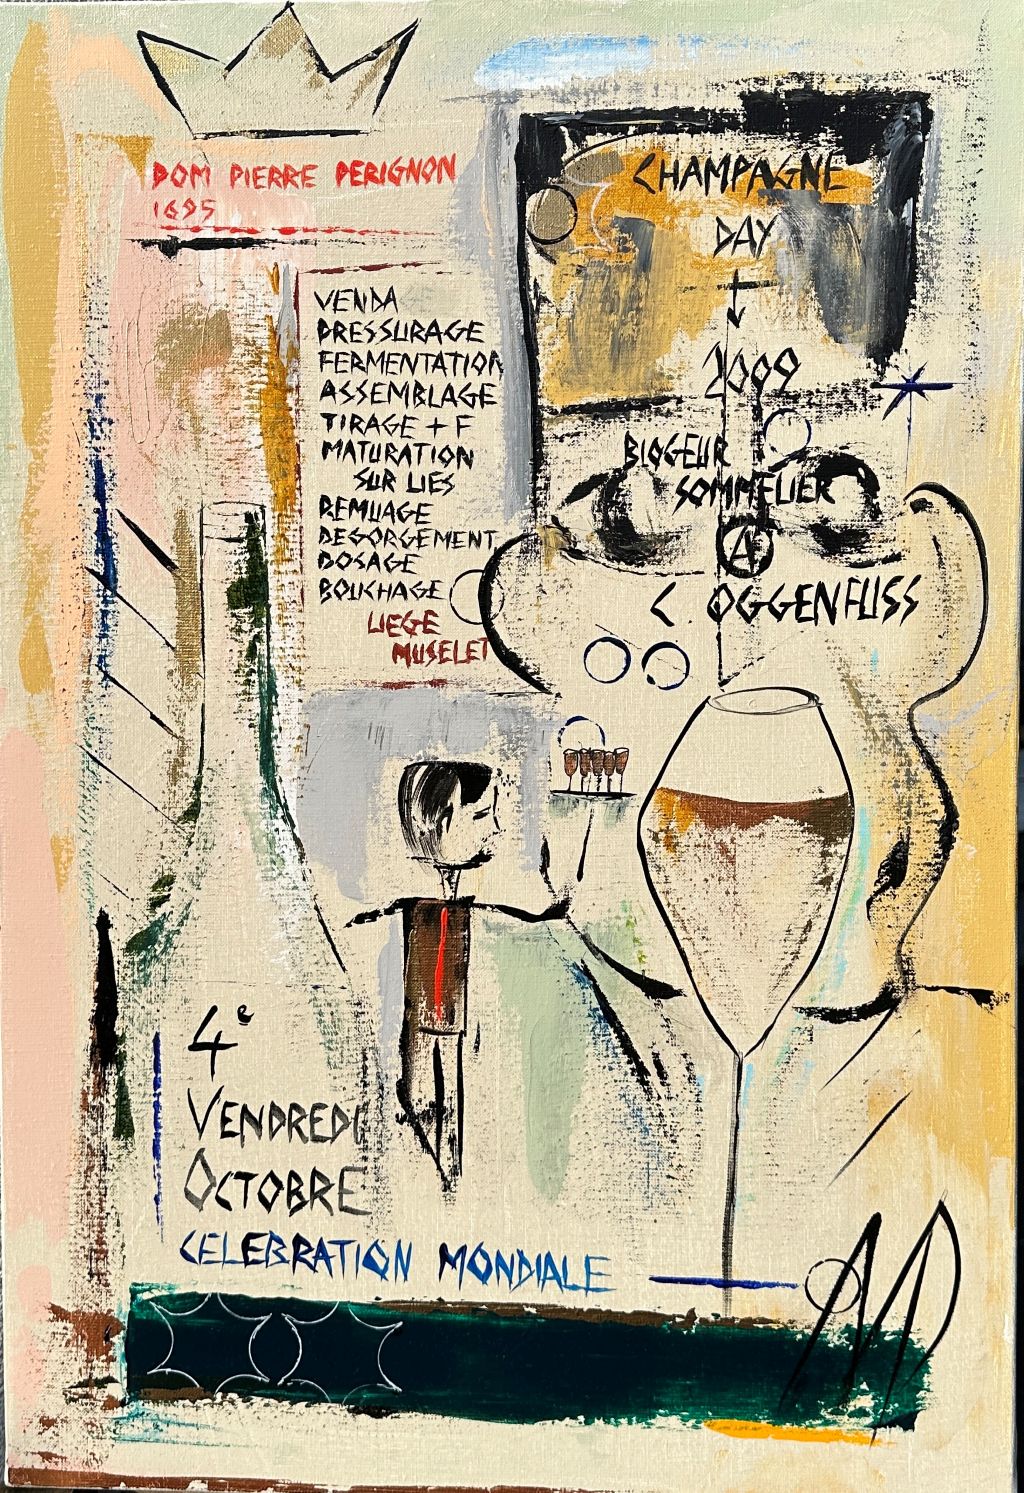 DOM PIERRE PERIGNON
1695
CHAMPAGNE
DAY
2009
BLOGEUR
SOMMELIER
A
C OGGENFUSS
VENDA
PRESSURAGE
FERMENTATION
ASSEMBLAGE
TIRAGE + F
MATURATION
SUR LIES
REMUAGE
DEGORGEMENT
DOSAGE
BOUCHAGE
LIEGE
MUSELET
4e
VENDREDI
OCTOBRE
CELEBRATION MONDIALE